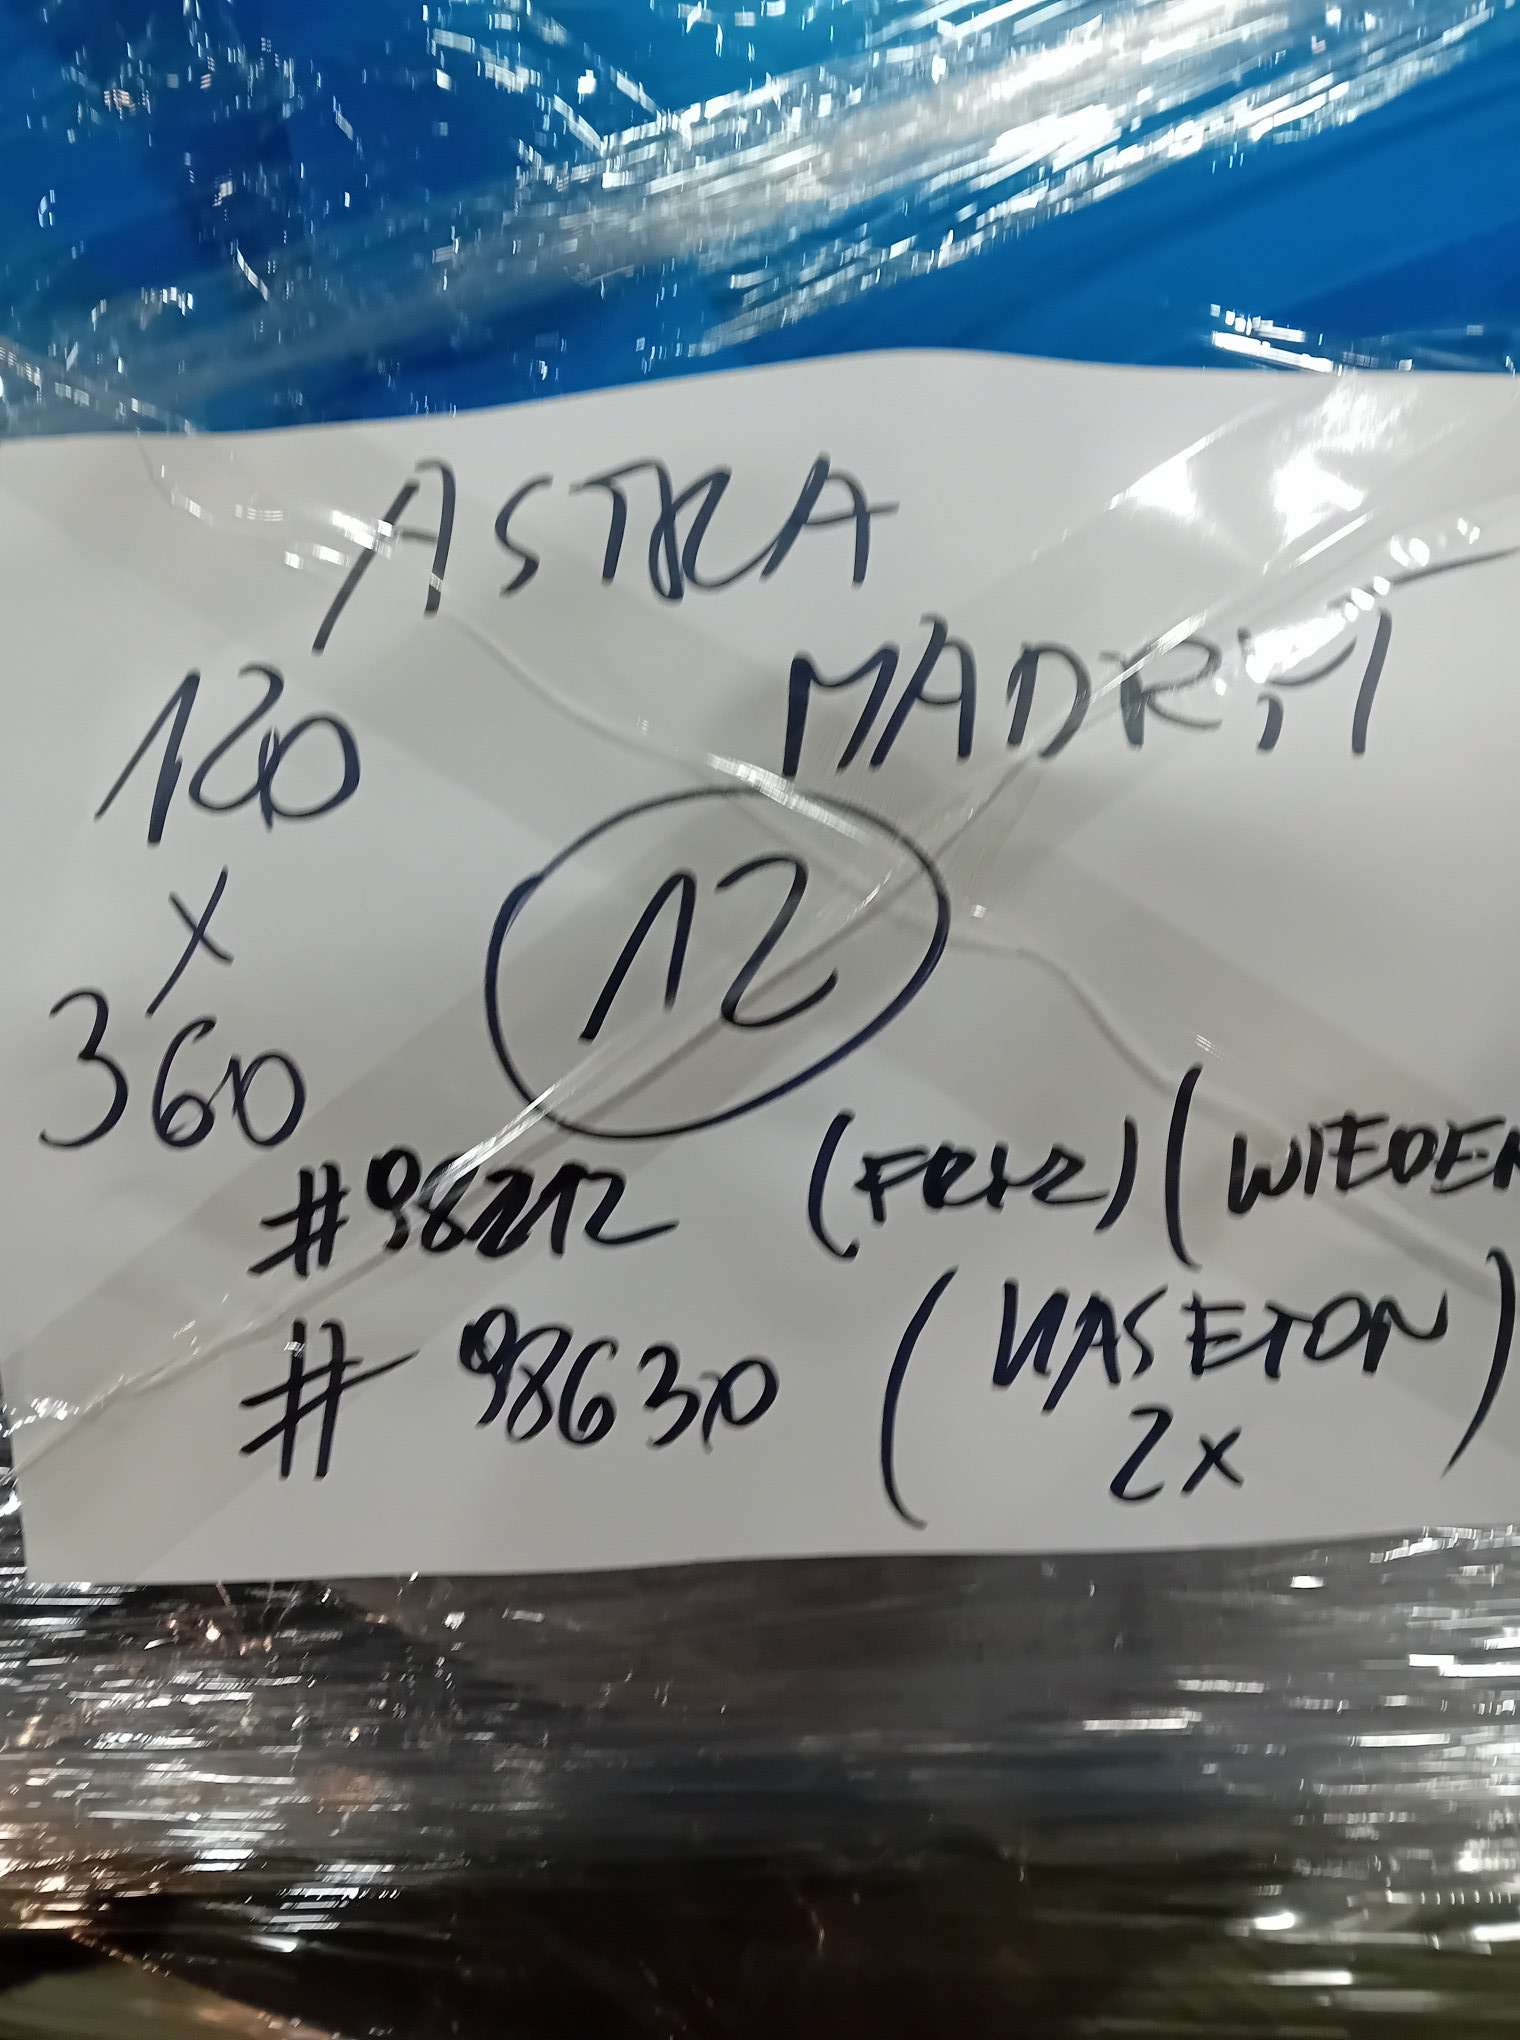 ASTRA
MADRYT
120
x
360
12
#98212 (FRYZ) (WIEDEN
# 98630 (KASETON)
2x